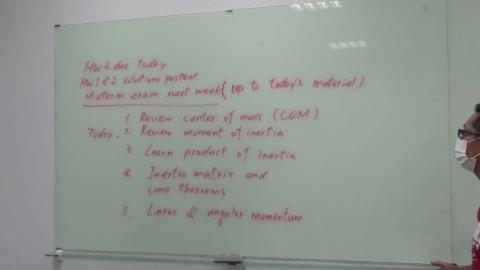 HW3 due today
HW 1&2 solutions posted
Midterm exam next week (up to today's material)
1. Review center of mass (COM)
Today. 2. Review moment of inertia
3. Learn product of inertia
4. Inertia matrix and
some theorems
5. Linear & angular momentum